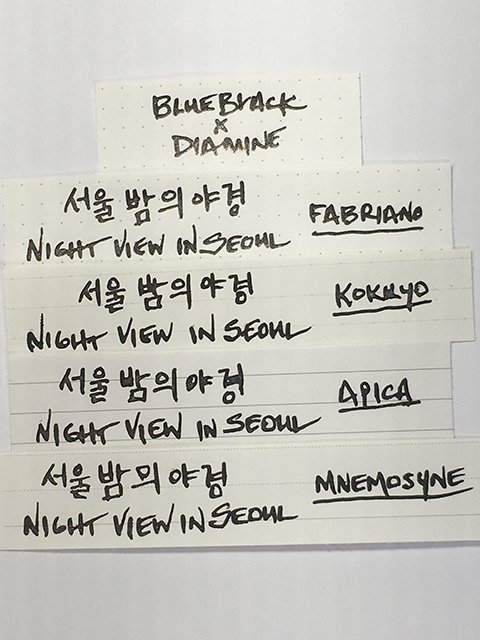 BLUEBLACK
x
DIAMINE
서울 밤의 야경
FABRIANO
NIGHT VIEW IN SEOUL
서울 밤의 야경
KOKUYO
NIGHT VIEW IN SEOUL
서울 밤의 야경
APICA
NIGHT VIEW IN SEOUL
서울 밤의 야경
MNEMOSYNE
NIGHT VIEW IN SEOUL